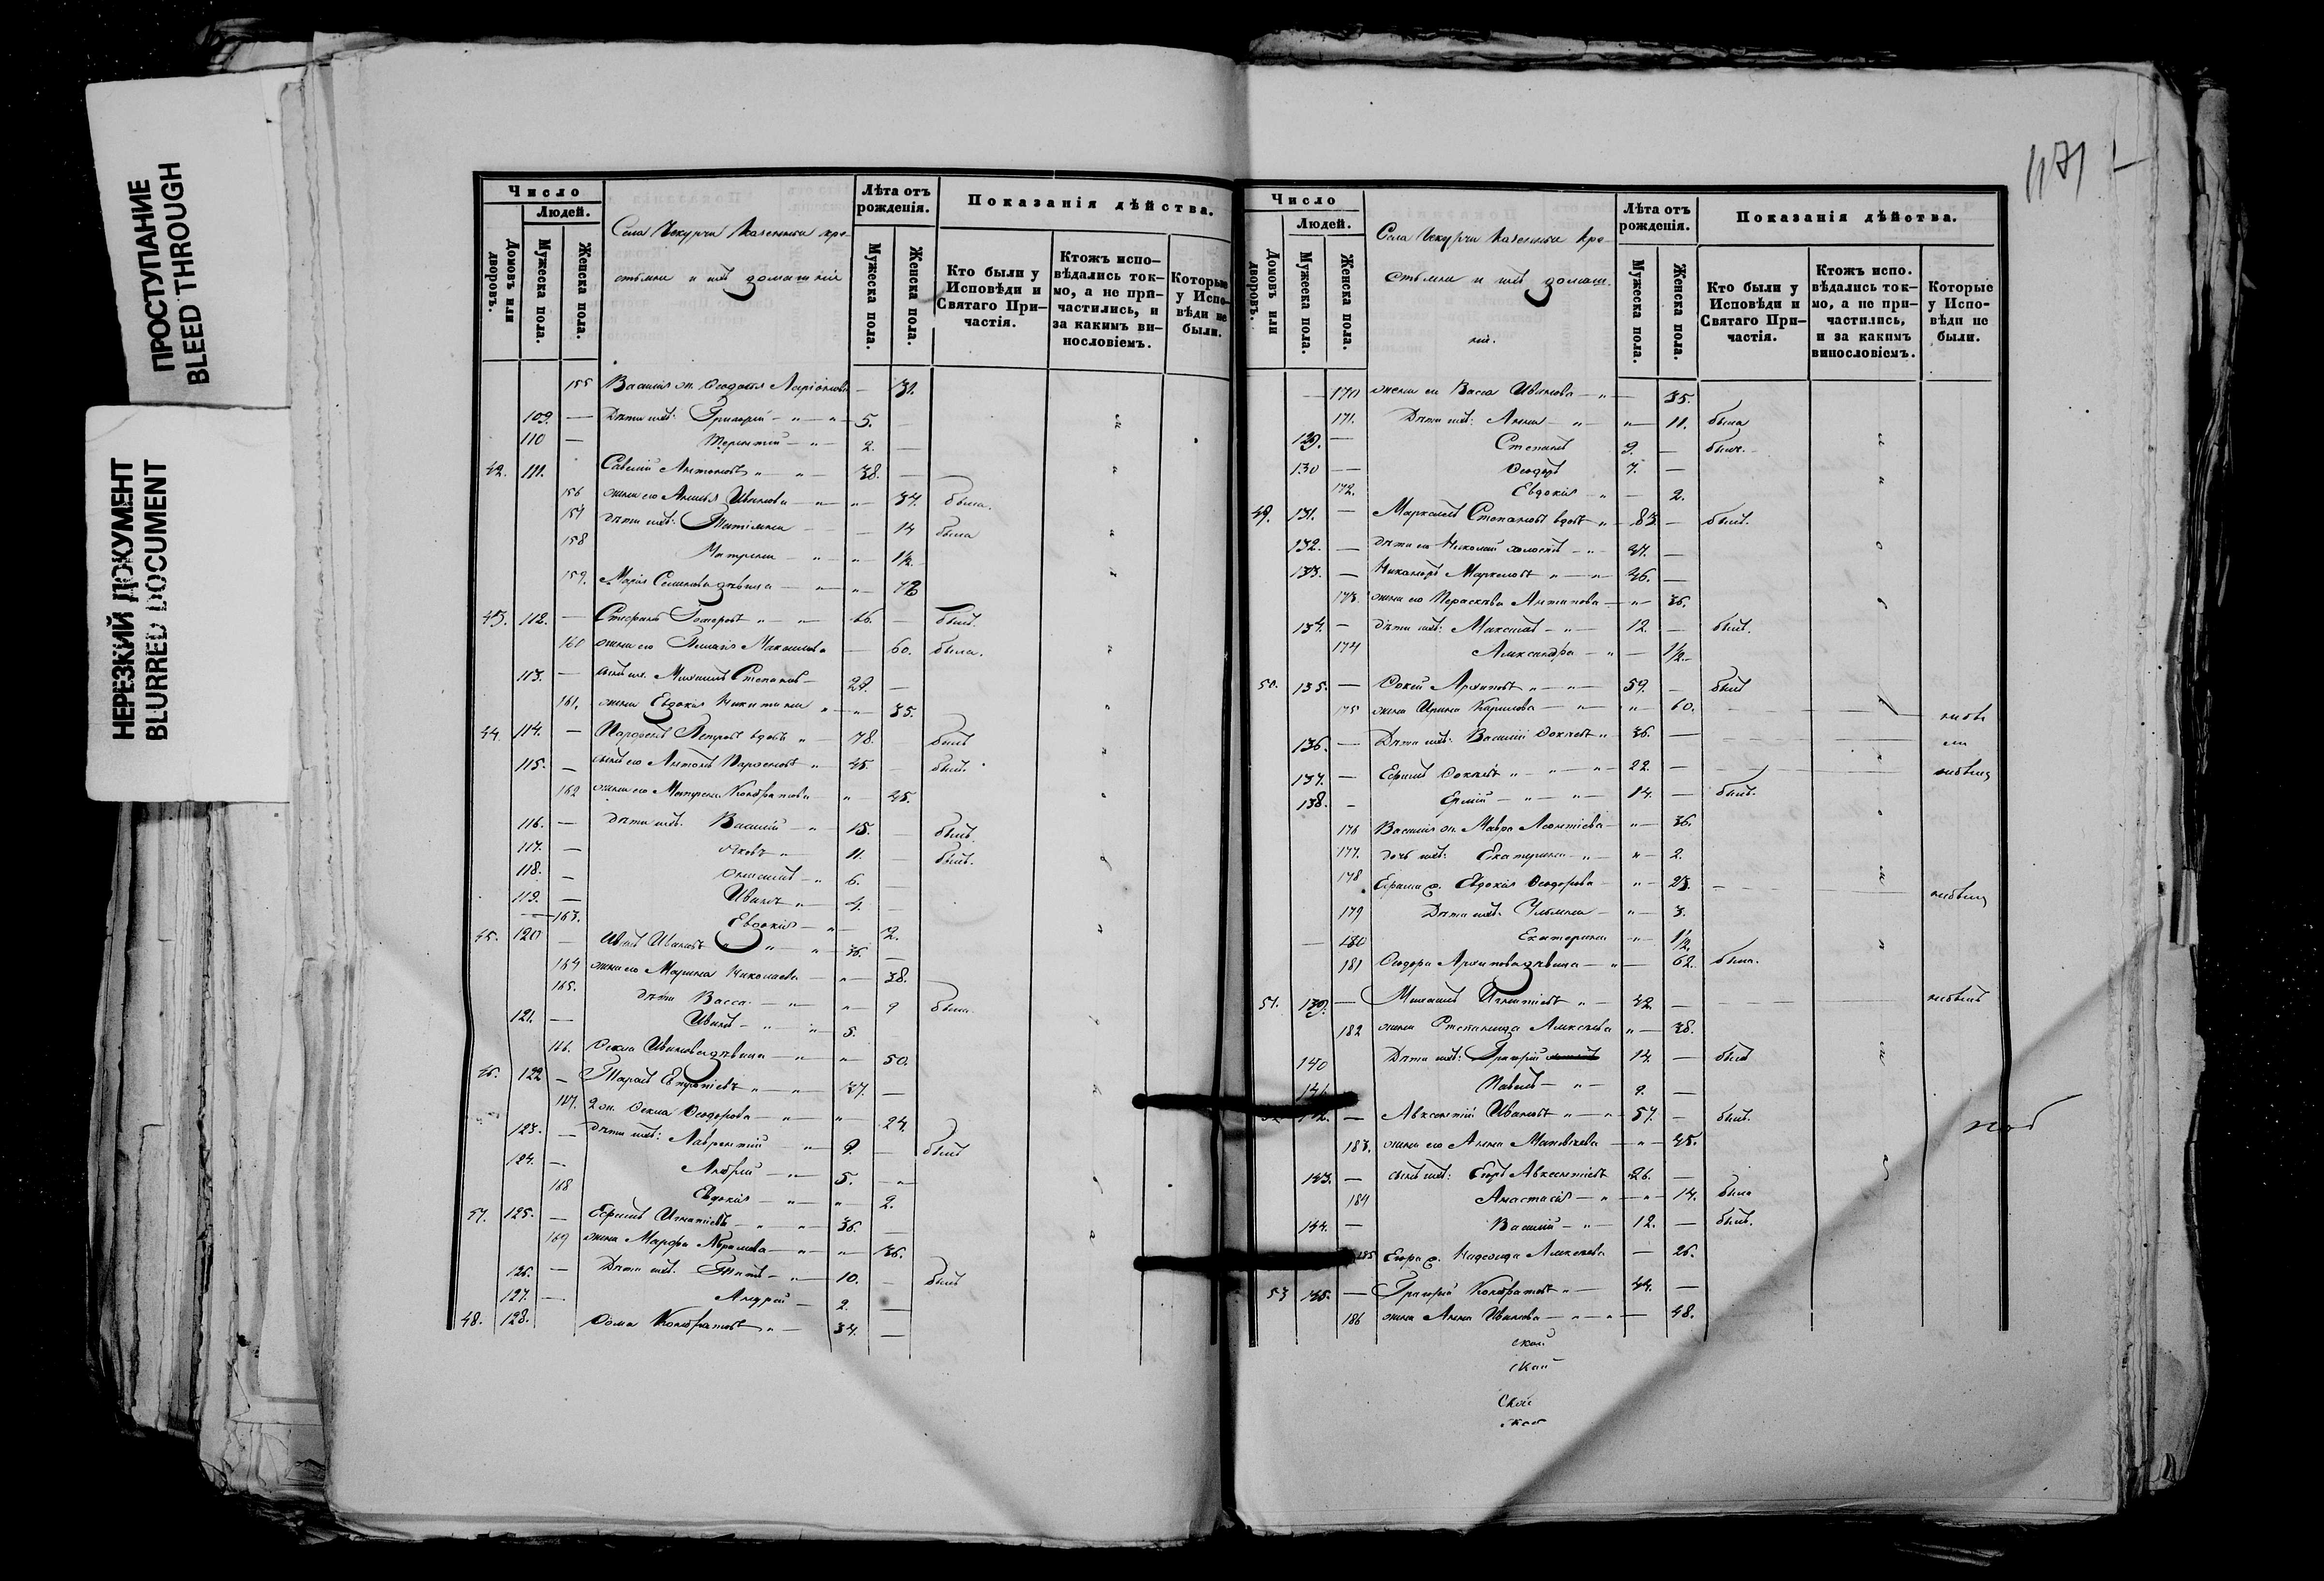 ПРОСТУПАНИЕ
BLEED THROUGH
НЕРЕЗКИЙ ДОКУМЕНТ
BLURRED DOCUMENT
Число
Людей.
Домовъ или дворовъ.
Мужеска пола.
Женска пола.
Села Чекурчи казенные кре-
стьяне и ихъ домашніе
Лѣта отъ рожденія.
Мужеска пола.
Женска пола.
Показанія дѣйства.
Кто были у Исповѣди и Святаго При-частія.
Ктожъ испо-вѣдались ток-мо, а не при-частились, и за какимъ ви-нословіемъ.
Которые у Испо-вѣди не были.
155 Василія ж. Ѳедосья Ларіонова — 31.
109. — Дѣти ихъ: Григорій — 5. —
110 — Терентій — 2. —
42. 111. Савелій Антоновъ 38. —
156 жена его Анисья Иванова — 34. была.
157 дѣти ихъ: Татіяна — 14 была
158 Матрена — 1/2.
159. Марія Семенова дѣвица — 72
43. 112. — Стефанъ 66. — былъ.
160 жена его Пелагія Максимова — 60. была.
113. — сынъ их. Михаилъ Степановъ 29. —
161. жена Евдокія Никитина — 35.
44. 114. — Парфенъ Петровъ вдовъ 78. былъ
115. — сынъ его Антонъ Парфеновъ 45. былъ.
162 жена его Матрена Кондратова — 45.
116. — дѣти ихъ. Василій — 15. — былъ.
117. — Яковъ 11. — былъ.
118. — Онисимъ 6. —
119. — Иванъ 4. —
163. Евдокія — 2.
45. 120 — Иванъ Ивановъ 36. —
164 жена его Марина Николаева — 38.
165. дѣти Васса — 9 была
121. — Иванъ — 5.
166. Ѳекла Иванова дѣвица — 50.
46. 122 — Тарасъ 37. —
167. 2 ж. Ѳекла Ѳедорова — 24.
123. — дѣти ихъ: Лаврентій 9. — былъ
124. — Андрей — 5. —
168 Евдокія — 2.
47. 125. — Ефимъ Игнатіевъ — 36.
169 жена Марфа Абрамова — 36.
126. — Дѣти ихъ. Титъ — 10. — былъ
127. — Андрей — 2. —
48. 128. Ѳома Кондратовъ 34. —
1171
Число
Людей.
Домовъ или дворовъ.
Мужеска пола.
Женска пола.
Села Чекурчи казенные кре-
стьяне и ихъ домаш-
ніе.
Лѣта отъ рожденія.
Мужеска пола.
Женска пола.
Показанія дѣйства.
Кто были у Исповѣди и Святаго При-частія.
Ктожъ испо-вѣдались ток-мо, а не при-частились, и за какимъ винословіемъ.
Которые у Испо-вѣди не были.
170 жена ег Васса Иванова — 35.
171. Дѣти ихъ: Анна — 11. была
129. — Степанъ 9. — былъ.
130 — Ѳеодоръ 7. —
172. Евдокія — 2.
49. 131. — Маркеллъ Степановъ вдовъ 83. — былъ.
132. — дѣти ег Николай холостъ 47. —
133. — Никаноръ Маркеловъ 36. —
173. жена его Параскева Антипова — 36.
134. — дѣти ихъ: Максимъ — 12. — былъ.
174 Александра — 1/2.
50. 135. — Ѳокій Архиповъ 59. — былъ
175 жена Ирина Карпова — 60.
136. — Дѣти ихъ: Василій 36. —
137. — Ефимъ 22. —
138. — Ермій — 14. — былъ.
176 Василія ж. Мавра Леонтіева — 36.
177. дочь ихъ: Екатерина — 2.
178 Ефима ж. Евдокія Ѳеодорова — 23.
179 Дѣти ихъ: Ульяна — 3.
180 Екатерина — 1/2.
181 Ѳеодора Архипова дѣвица — 62. была.
51. 139. — Михаилъ Игнатіевъ 42. —
182 жена Степанида Алексѣева — 38.
140 Дѣти ихъ: Григорій 14. — былъ
141. Павелъ — 9. —
142. — Авксентій Ивановъ — 57. — былъ.
183. жена его Анна Матвѣева — 45.
143. — сынъ ихъ: Егоръ Авксентіевъ 26. —
184 Анастасія — 14. была
144. — Василій — 12. — былъ.
185 Егора ж. Надежда Алексѣева — 26.
53 145. — Григорій Кондратовъ — 44. —
186 жена Анна Иванова — 48.
ской
ской
ской